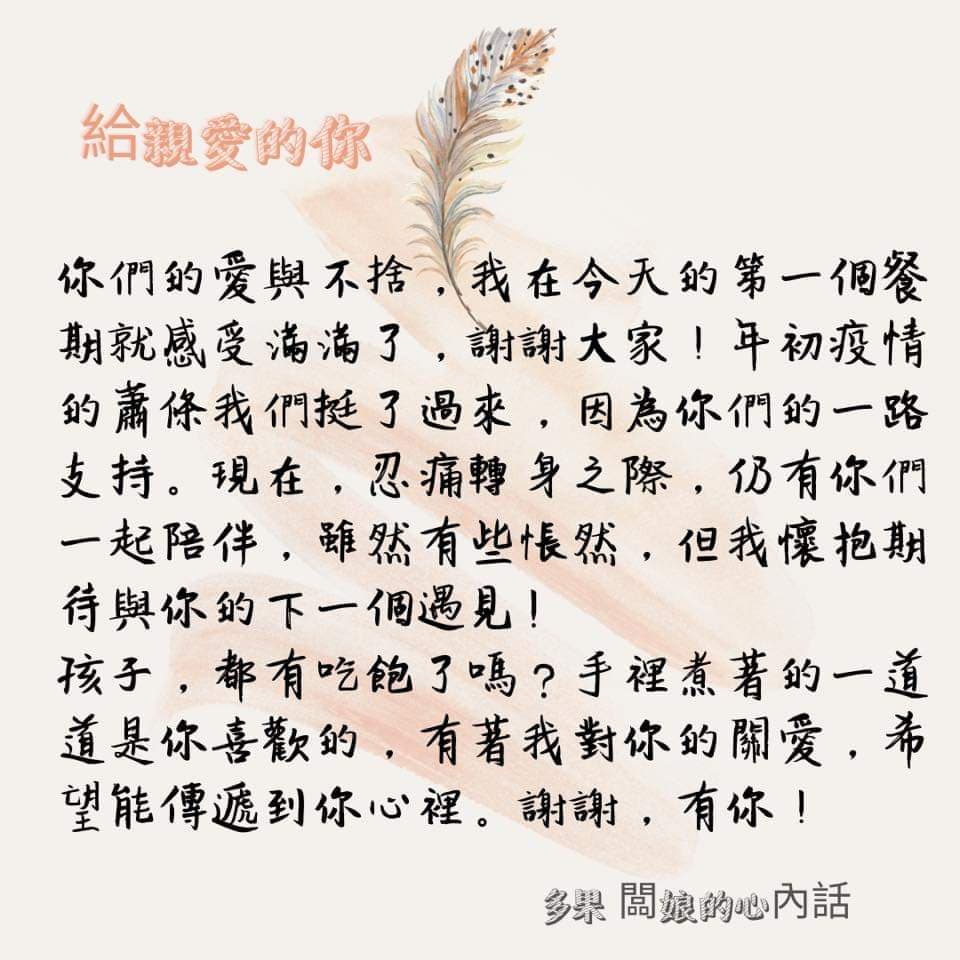 給親愛的你
你們的愛與不捨，我在今天的第一個餐
期就感受滿滿了，謝謝大家！年初疫情
的蕭條我們挺了過來，因為你們的一路
支持。現在，忍痛轉身之際，仍有你們
一起陪伴，雖然有些悵然，但我懷抱期
待與你的下一個遇見！
孩子，都有吃飽了嗎？手裡煮著的一道
道是你喜歡的，有著我對你的關愛，希
望能傳遞到你心裡。謝謝，有你！
多果 闆娘的心內話